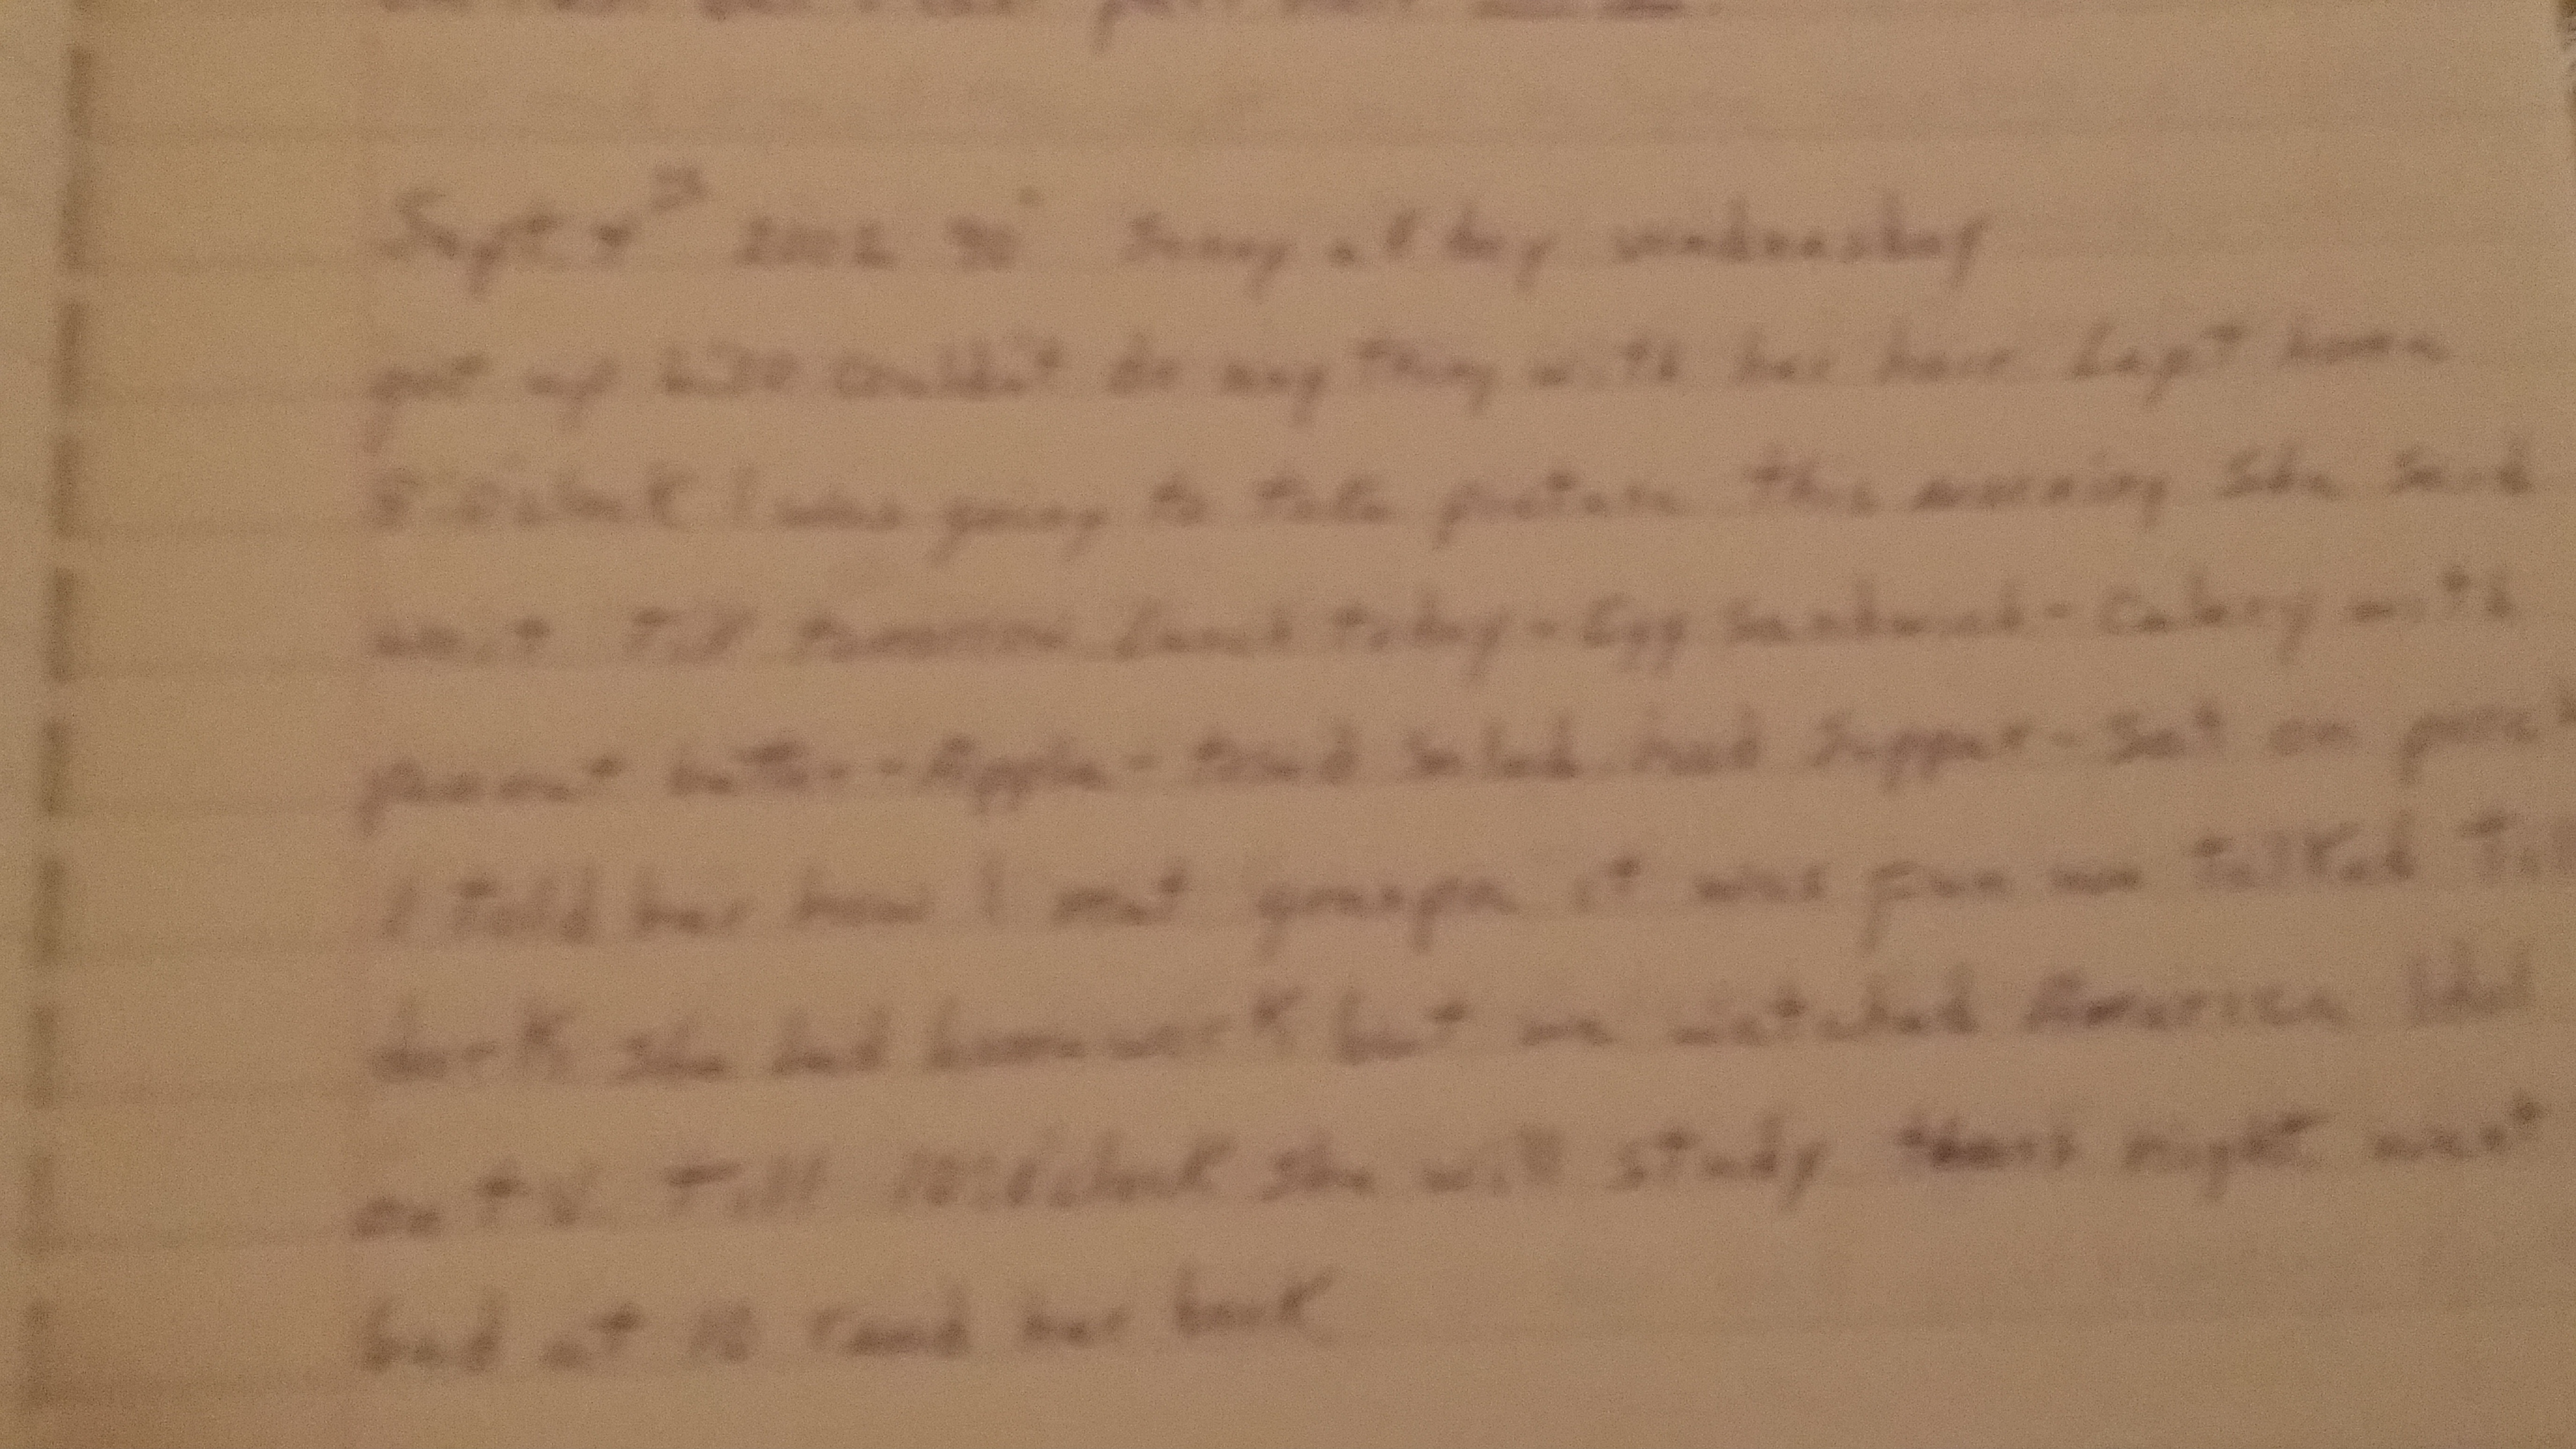 Sept 4th 2002 90° Sunny all day Wednesday
got up 6:30 couldn't do any thing with her hair Lept home
8:00 clock I was going to take picture this morning She said
wait Till tomorrow Lunch today - Egg Sandwich - Celery with
peanut butter - Apple - had Supper - Sat on
I Told her how I met granpa it was fun we Talked
dark She had homework but we watched American Idol
on T.V. Till 10:0'clock She will study Thurs night went
bed at 10 read her book